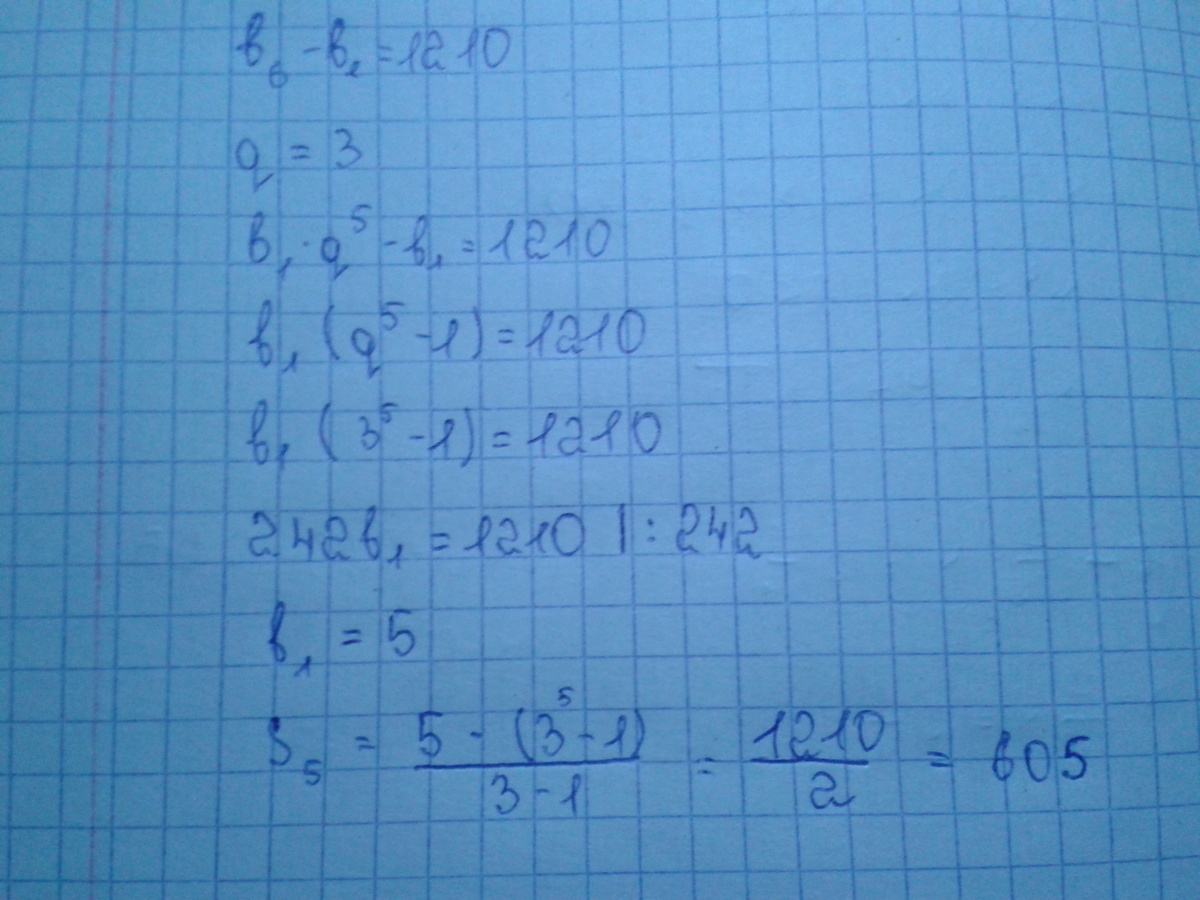 b₆ - b₁ = 1210
q = 3
b₁ · q⁵ - b₁ = 1210
b₁ (q⁵ - 1) = 1210
b₁ (3⁵ - 1) = 1210
242b₁ = 1210 | : 242
b₁ = 5
S₅ = 5 - (3⁵ - 1) / 3 - 1 = 1210 / 2 = 605